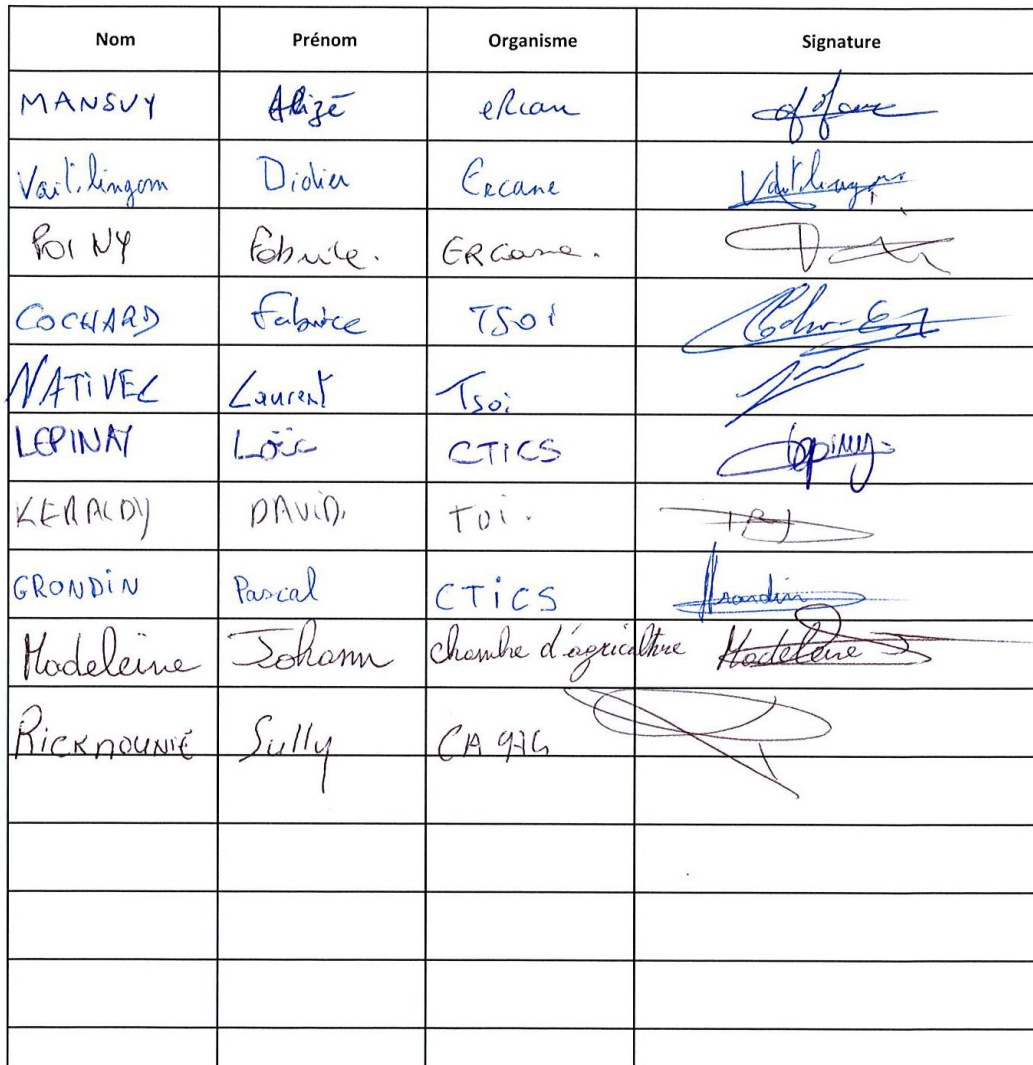 Nom Prénom Organisme Signature
MANSUY Alizé eRcan
Vaitilingom Didier Ercane Vaitilingom
POINY Fabrice. ERcane.
COCHARD Fabrice TSOi
NATIVEL Laurent Tsoi
LEPINAY Loïc CTICS Lepinay
KERALDY DAVID. TOi.
GRONDiN Pascal CTiCS Grondin
Madeleine Johann chambre d'agriculture Madeleine
Sully CA 974